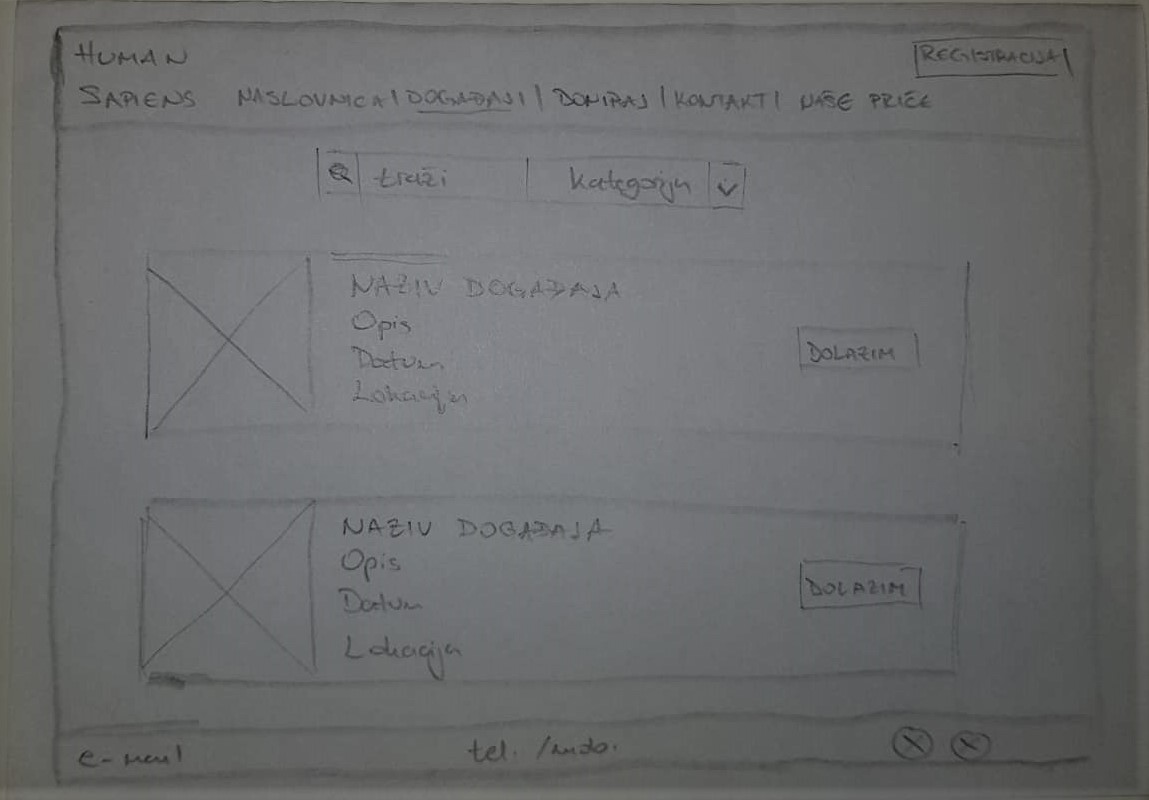 HUMAN
REGISTRACIJA
SAPIENS NASLOVNICA | DOGAĐAJI | DONIRAJ | KONTAKT | NAŠE PRIČE
traži kategorija
NAZIV DOGAĐAJA
Opis
Datum
Lokacija
DOLAZIM
NAZIV DOGAĐAJA
Opis
Datum
Lokacija
DOLAZIM
e-mail tel. /mob.